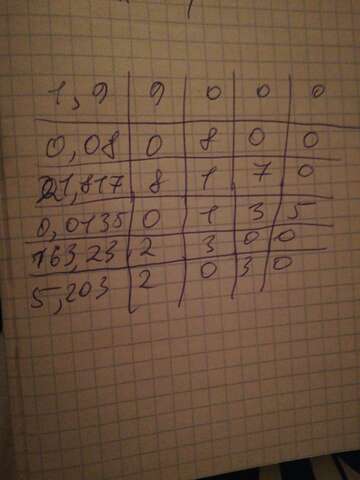 1,9 9 0 0 0
0,08 0 8 0 0
21,817 8 1 7 0
0,0135 0 1 3 5
163,23 2 3 0 0
5,203 2 0 3 0